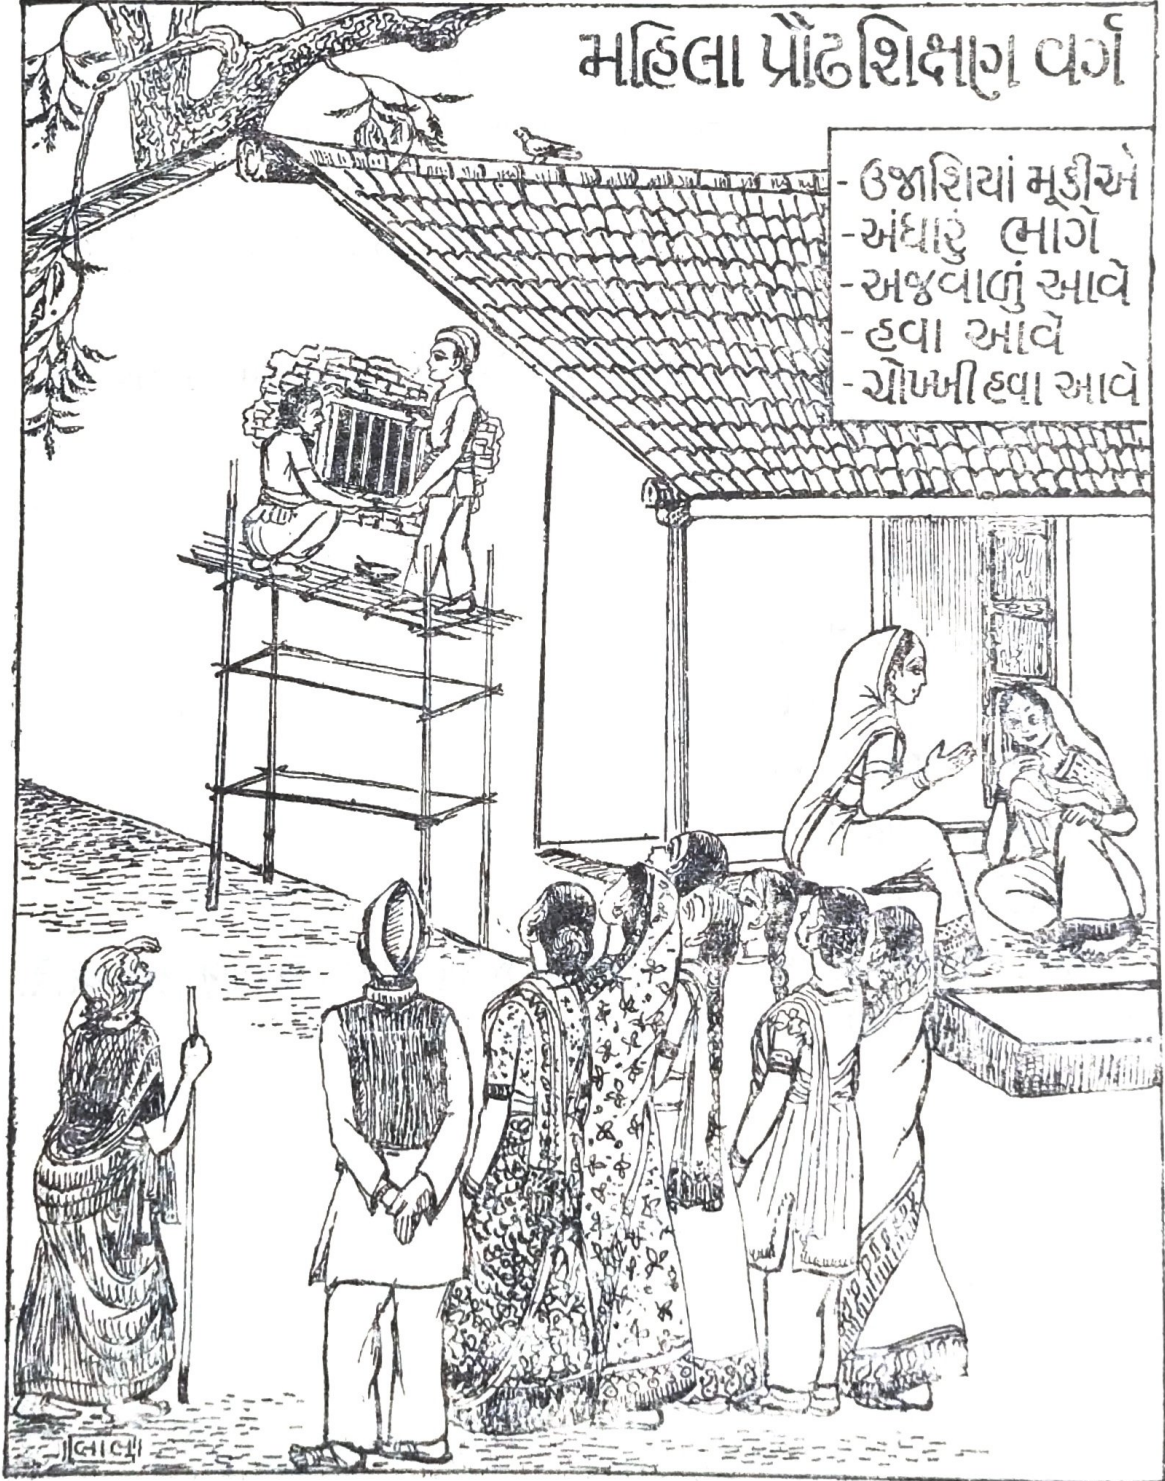 મહિલા પ્રૌઢશિક્ષણ વર્ગ
- ઉજાશિયાં મૂકીએ
- અંધારું ભાગે
- અજવાળું આવે
- હવા આવે
- ચોખ્ખી હવા આવે